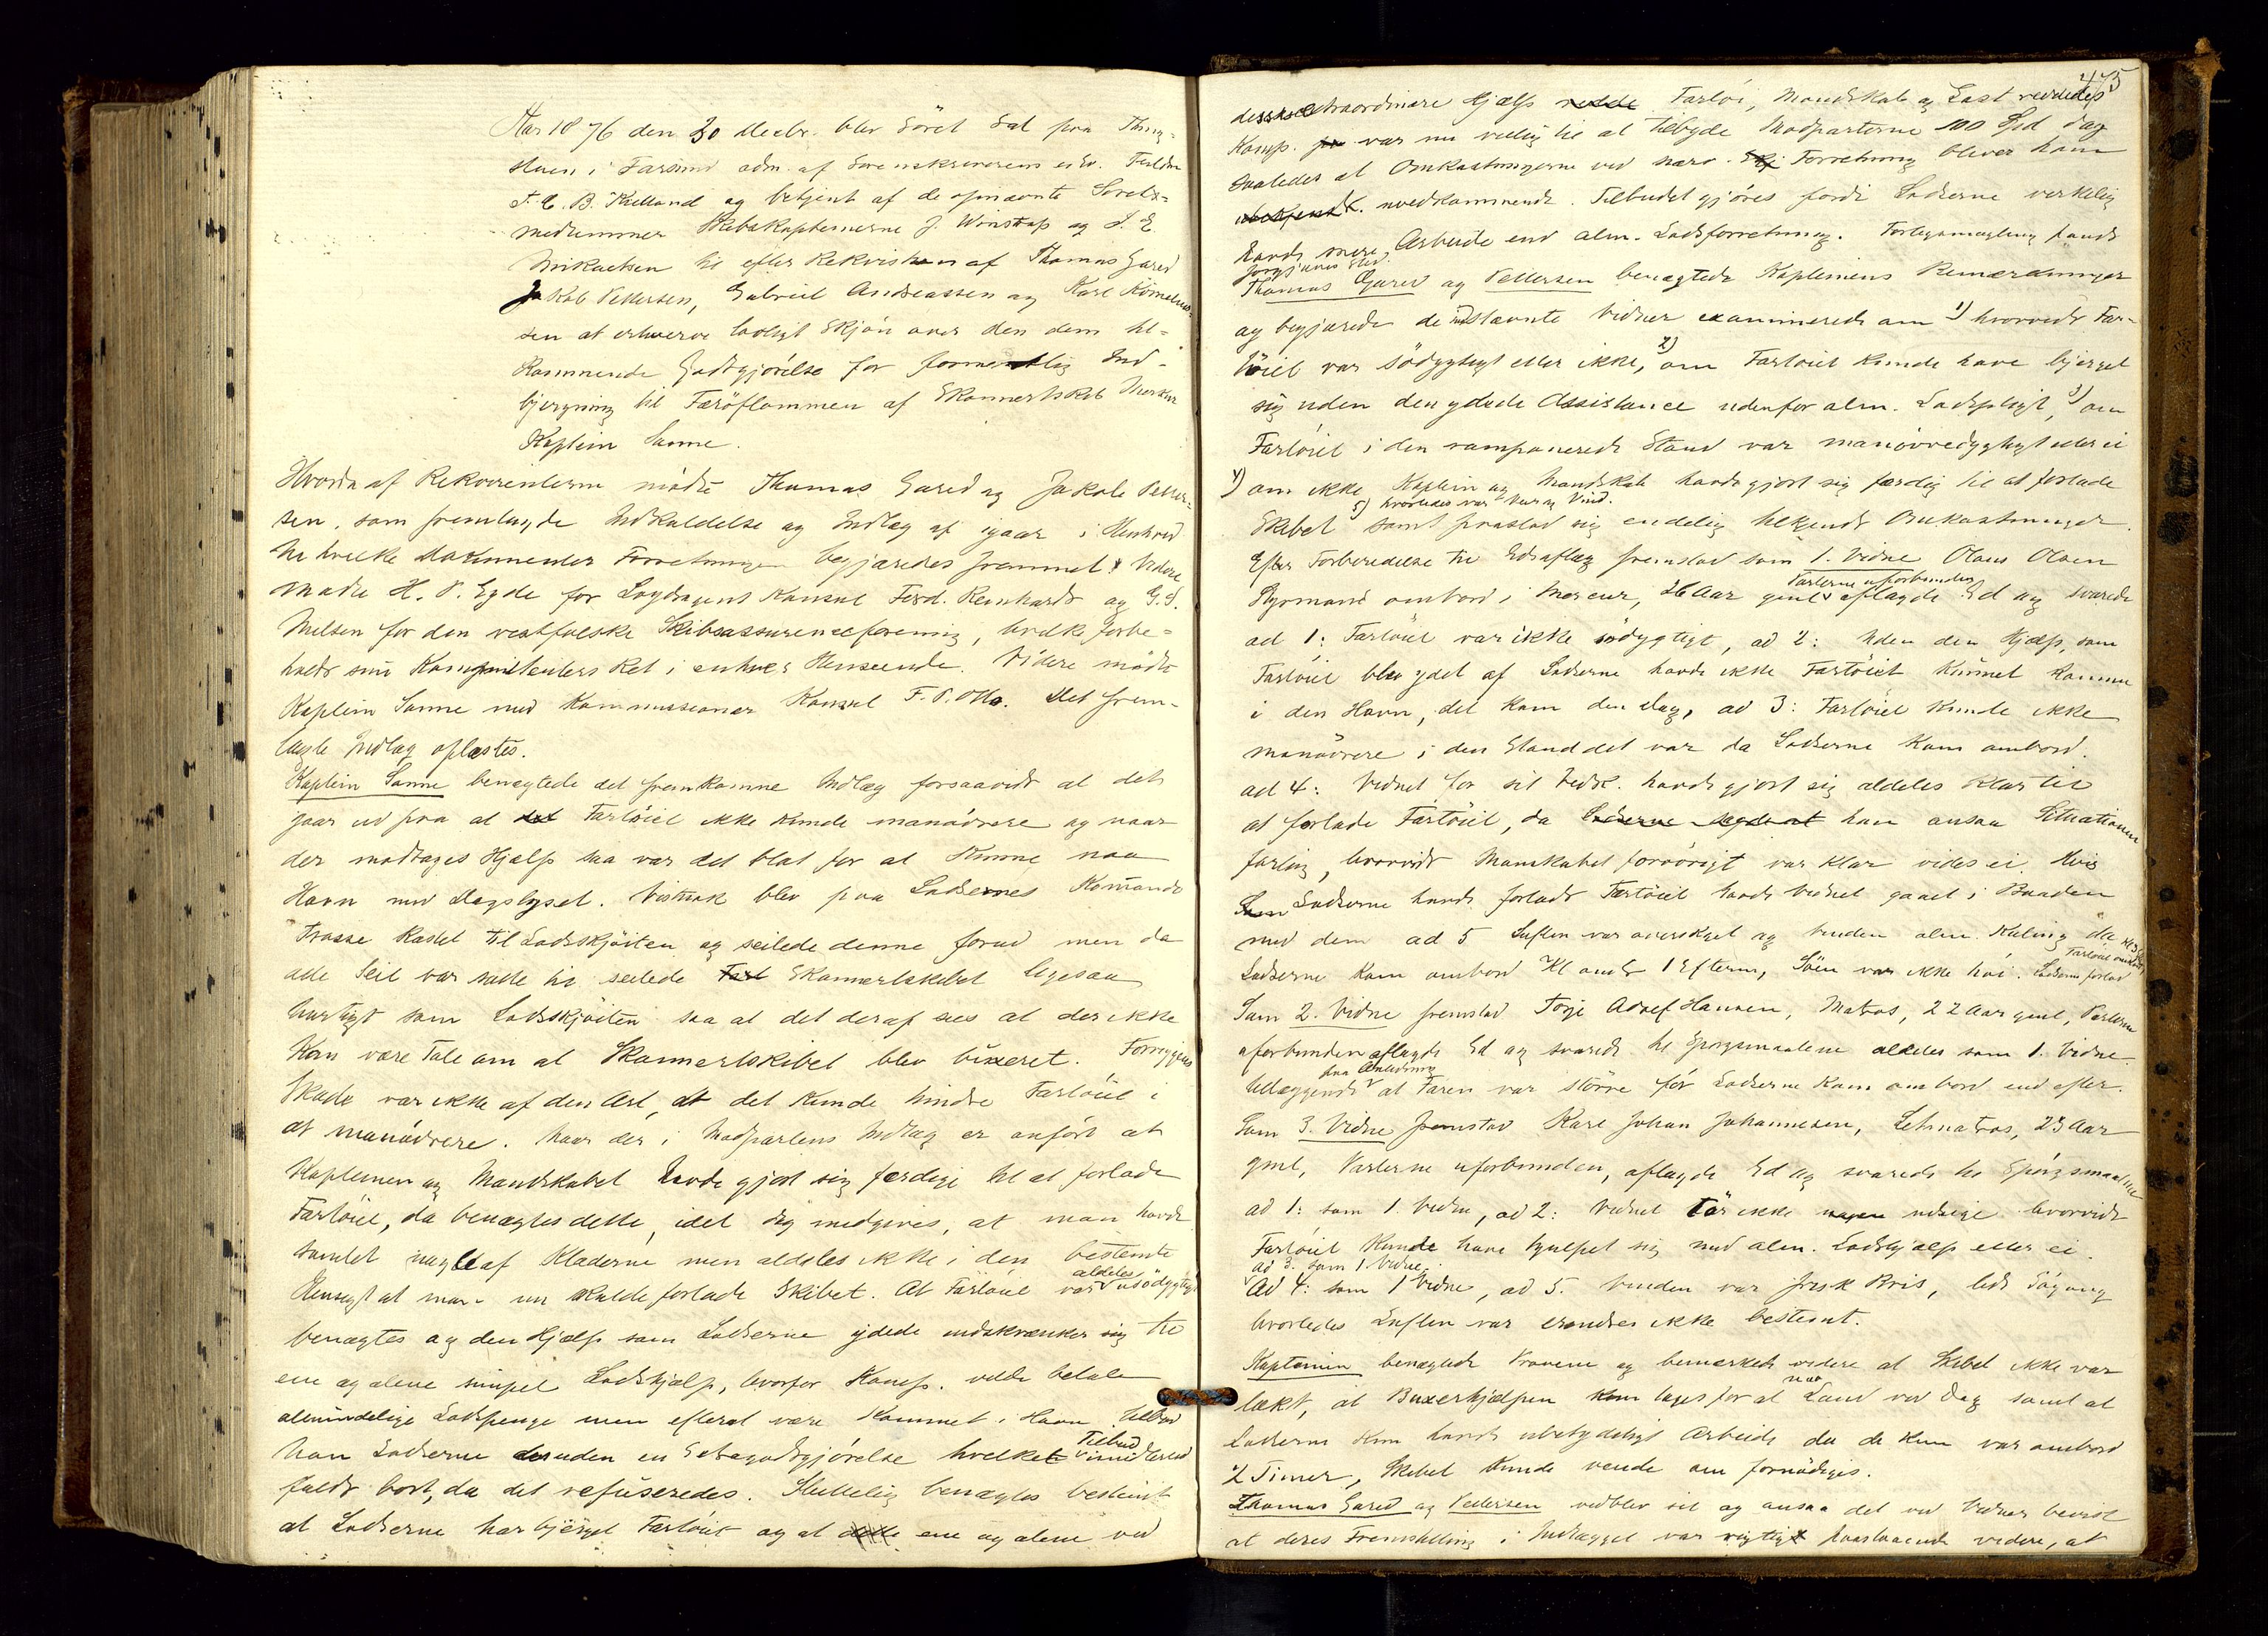 Aar 1876 den 30 Decbr. blev Söret sat paa Thing-
stuen i Farsund adm. af Sorenskriverens edsv. Fuldm
T. C. B. Kielland og betjent af de opnævnte Sörets-
medlemmer Skibskapteinerne J. Winstrup og S. E.
Mikaelsen til efter Rekvisition af Thomas Gared
Jakob Pettersen, Gabriel Andreassen og Karl Kornelius-
sen at erhverve lovligt Skjön over den dem til-
kommende Godtgjörelse for formentlig Ind-
bjergning til Faröflommen af Skonnertskib Merkur
Kaptein Sanne.
Hvorda af Rekvirenterne mödte Thomas Gared og Jakob Petter-
sen, som fremlagde Indkaldelse og Indlæg af igaar i Henhold
til hvilke Dokumenter Forretningen begjæredes fremmet. Videre
mödte H. P. Egde for Loydsagent Konsul Ferd. Reinhardt og G. S.
Nielsen for den vestfoldske Skibsassuranceforening, hvilke forbe-
holdt sine Komparenters Ret i enhver Henseende. Videre mödte
Kaptein Sanne med Kommissionær Konsul F. P. Otto. Det frem-
lagte Indlæg oplæstes.
Kaptein Sanne benægtede det fremkomne Indlæg forsaavidt at det
gaar ud paa at det Fartöiet ikke kunde manövrere og naar
der modtages Hjælp saa var det blot for at kunne naa
Havn med Dagslyset. Vistnok blev paa Lodsernes Komando
Trosse kastet til Lodsskjöiten og seilede denne forud men da
alle Seil var satte til seilede Fart Skonnertskibet ligesaa
hurtigt som Lodsskjöiten saa at det deraf sees at der ikke
kan være Tale om at Skonnertskibet blev buxeret. Forrejgens
Skade var ikke af den Art, at det kunde hindre Fartöiet i
at manövrere. Naar der i Modpartens Indlæg er anfört at
Kapteinen og Mandskabet havde gjort sig færdige til at forlade
Fartöiet, da benægtes dette, idet dog medgives, at man havde
samlet nogle af Klæderne men aldeles ikke i den bestemte
Hensigt at man nu skulde forlade Skibet. At Fartöiet var aldeles usödygtigt
benægtes og den Hjælp som Lodserne ydede indskrænker sig til
ene og alene simpel Lodshjælp, hvorfor Komp. vilde betale
almindelige Lodspenge men efterat være kommet i Havn tilbød
han Lodserne desuden en Extragodtgjörelse hvilket Tilbud imidlertid
faldt bort, da det refuseredes. Sluttelig benægtes bestemt
at Lodserne har bjerget Fartöiet og at dette ene og alene ved
475
deres extraordinære Hjælp redde Fartöi, Mandskab og Last reddedes
Komp. for var nu villig til at tilbyde Modparterne 100 Spd dog
saaledes at Omkostningerne ved nærv. Skj Forretning bliver ham
ubekjendt. uvedkommende. Tilbudet gjöres fordi Lodserne virkelig
havde mere Arbeide end alm. Lodsforretning. Forligsmægling fandt
forgjæves Sted.
Thomas Gared og Pettersen benægtede Kapteinens Bemærkninger
og begjærede de indstævnte Vidner examinerede om 1) hvorvidt Far-
töiet var södygtigt eller ikke, 2) om Fartöiet kunde have bjerget
sig uden den ydede Assistance udenfor alm. Lodspligt, 3) om
Fartöiet i den ramponerede Stand var manövredygtigt eller ei
4) om ikke Kaptein og Mandskab havde gjort sig færdig til at forlade
Skibet 5) hvorledes var Veir og Vind. samt paastod sig endelig tilkjendt Omkostninger.
Efter Forberedelse til Edsaflæg fremstod som 1. Vidne Olaus Olsen
Styrmand ombord i Mercur, 26 Aar gml, Parterne uforbunden aflagde Ed og svarede
ad 1: Fartöiet var ikke södygtigt, ad 2: Uden den Hjælp, som
Fartöiet blev ydet af Lodserne havde ikke Fartöiet kunnet komme
i den Havn, det kom den Dag, ad 3: Fartöiet kunde ikke
manövrere i den Stand det var da Lodserne kom ombord.
ad 4: Vidnet for sit Vedk. havde gjort sig aldeles klar til
at forlade Fartöiet, da Lodserne sagde at han ansaa Situationen
farlig, hvorvidt Manskabet forövrigt var klar vides ei. Hvis
Som Lodserne havde forladt Fartöiet havde Vidnet gaaet i Baaden
med dem ad 5 Luften var overskyet og Vinden alm. Kuling da
Lodserne kom ombord Kl omtr 1 Efterm, Söen var ikke höi. Lodserne forlod
Som 2. Vidne fremstod Torje Adolf Hansen, Matros, 22 Aar gml, Parterne
uforbunden aflagde Ed og svarede til Spörgsmaalene aldeles som 1. Vidne
tillæggende paa Anledning at Faren var större för Lodserne kom ombord end efter.
Som 3. Vidne fremstod Karl Johan Johannesen, Letmatros, 23 Aar
gml, Parterne uforbunden, aflagde Ed og svarede til Spörgsmaalene
ad 1: som 1 Vidne, ad 2: Vidnet tör ikke udsige hvorvidt
Fartöiet kunde have hjulpet sig med alm. Lodshjælp eller ei.
ad 3. som 1 Vidne.
Ad 4: som 1 Vidne, ad 5. Vinden var frisk Bris, lidt Sögang
hvorledes Luften var erindres ikke bestemt.
Kapteinen benægtede Provene og bemærkede videre at Skibet ikke var
lækt, at Buxerhjælpen kom toges for at naa Land ved Dag samt at
Lodserne kun havde ubetydeligt Arbeide da de kun var ombord
2 Timer, Skibet kunde vende om fornödiges.
Thomas Gared og Pettersen vedblev sit og ansaa det ved Vidner bevist
at deres Fremstilling i Indlægget var rigtigt paastaaende videre, at